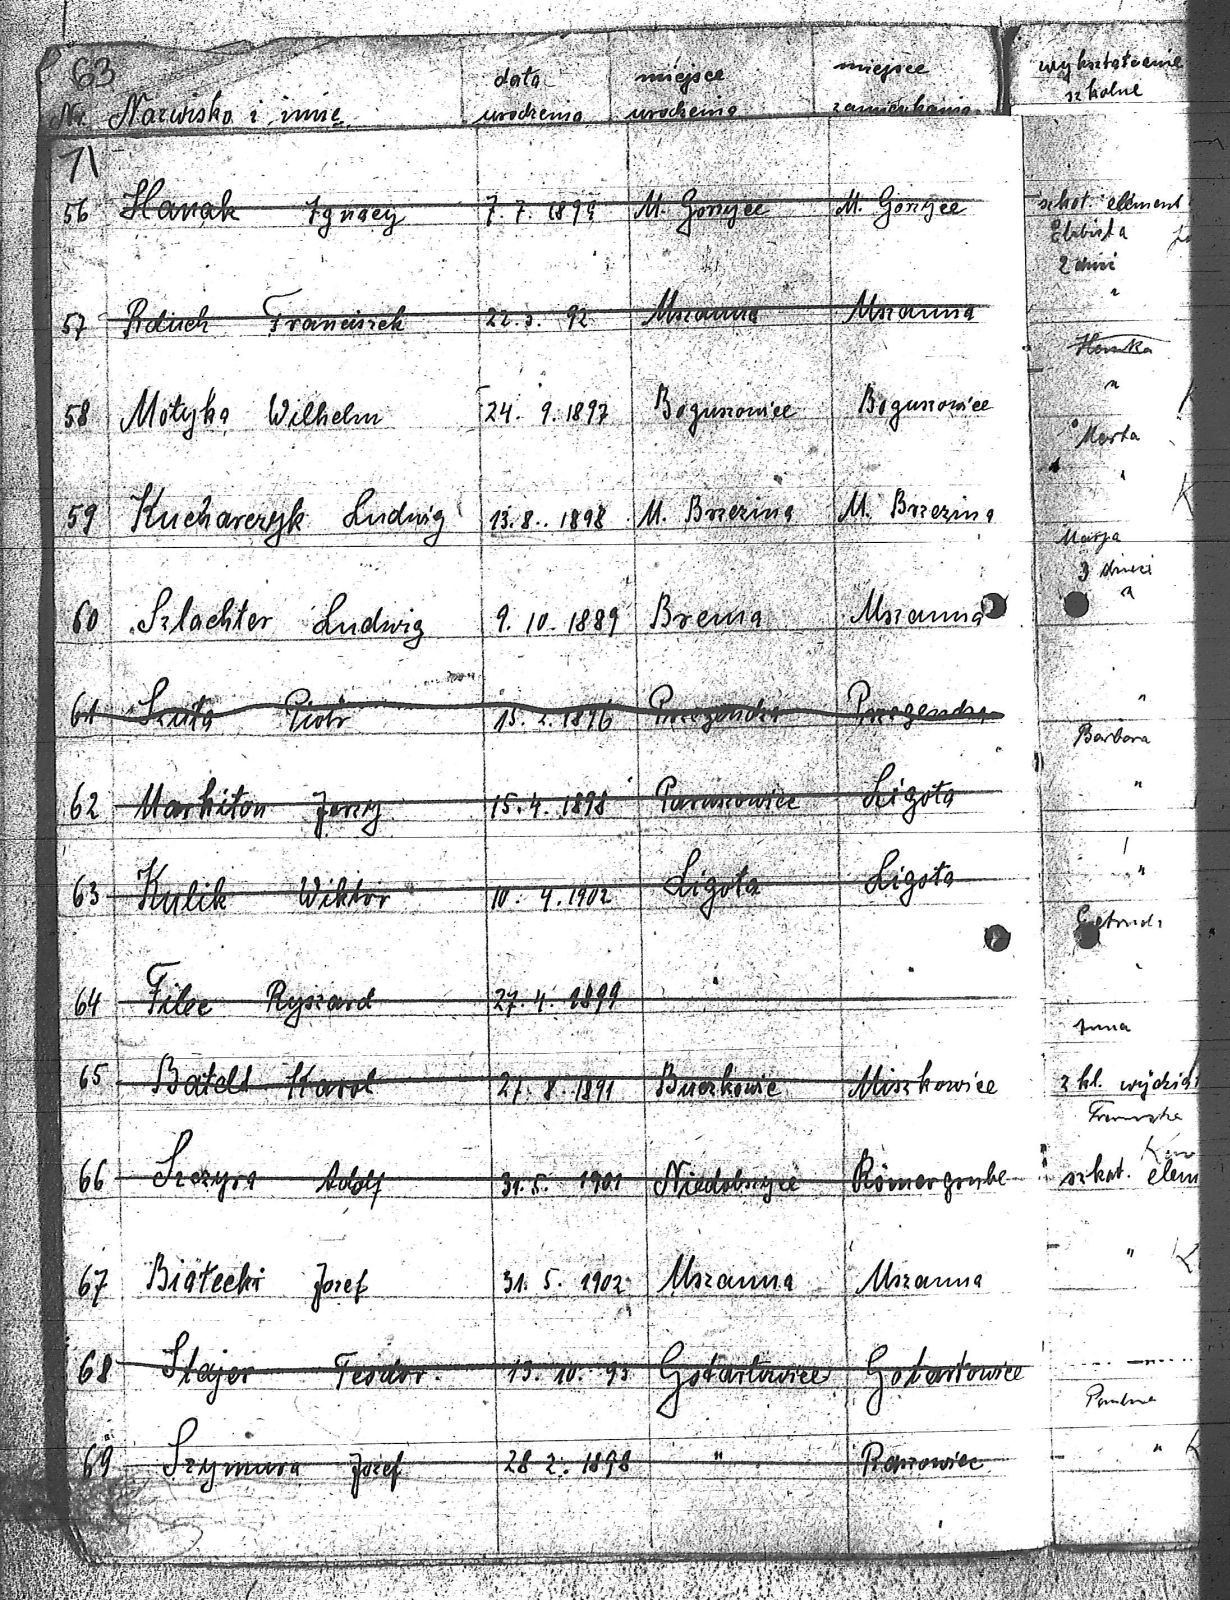 63
Nr. Nazwisko i imię data urodzenia miejsce urodzenia miejsce zamieszkania wykształcenie szkolne
71
56 Hanak Ignacy 7. 7. 1899 M. Gorzyce M. Gorzyce szkoł. element
Elżbieta
2 dzieci
57 Rduch Franciszek 22. 3. 92 Mszanna Mszanna "
58 Motyka Wilhelm 24. 9. 1897 Boguszowice Boguszowice "
Marta
59 Kucharczyk Ludwig 13. 8. 1898 M. Brzezina M. Brzezina "
Marja
3 dzieci
60 Szlachter Ludwig 9. 10. 1889 Brema Mszanna "
61 Szuta Piotr 15. 2. 1896 Przegendza Przegendza "
Barbara
62 Markiton Jerzy 15. 4. 1898 Paruszowice Ligota "
63 Kulik Wiktor 10. 4. 1902 Ligota Ligota "
64 Filec Ryszard 27. 4. 1899
Anna
65 Karol 27. 8. 1891 Buczkowic Miszkowice 2 kl. wydzia
66 Szczyra Adolf 31. 5. 1901 Niedobczyce Römergrube szkoł. elem
67 Białecki Józef 31. 5. 1902 Mszanna Mszanna "
68 Stajer Teodor. 13. 10. 93 Gotartowice Gotartowice
69 Szymura Józef 28 2. 1898 " "